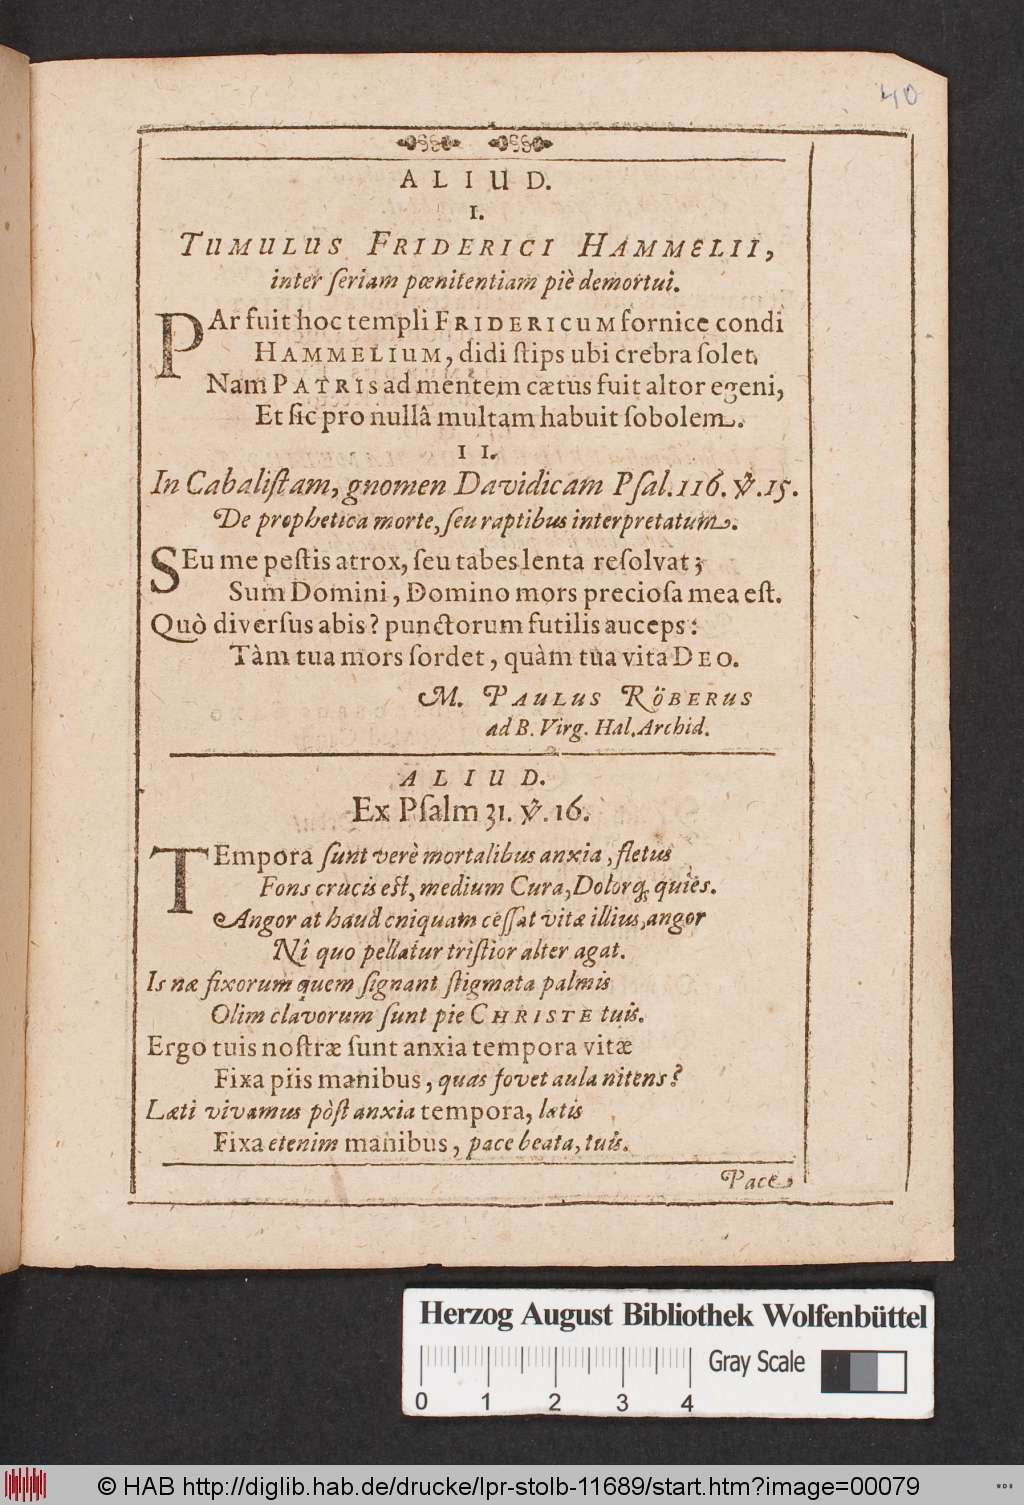 40
ALIUD.
I.
TUMULUS FRIDERICI HAMMELII,
inter ſeriam pœnitentiam piè demortui.
PAr fuit hoc templi FRIDERICUM fornice condi
HAMMELIUM, didi ſtips ubi crebra ſolet.
Nam PATRIS ad mentem cætus fuit altor egeni,
Et ſic pro nullâ multam habuit ſobolem.
II.
In Cabaliſtam, gnomen Davidicam Pſal. 116. ℣. 15.
De prophetica morte, ſeu raptibus interpretatum.
SEu me peſtis atrox, ſeu tabes lenta reſolvat;
Sum Domini, Domino mors precioſa mea eſt.
Quò diverſus abis? punctorum futilis auceps:
Tàm tua mors ſordet, quàm tua vita DEO.
M. PAULUS RÖBERUS
ad B. Virg. Hal. Archid.
ALIUD.
Ex Pſalm 31. ℣. 16.
TEmpora ſunt verè mortalibus anxia, fletus
Fons crucis eſt, medium Cura, Dolorq́; quies.
Angor at haud cniquam ceſſat vitæ illius, angor
Nî quo pellatur triſtior alter agat.
Is næ fixorum quem ſignant ſtigmata palmis
Olim clavorum ſunt pie CHRISTE tuis.
Ergo tuis noſtræ ſunt anxia tempora vitæ
Fixa piis manibus, quas fovet aula nitens?
Læti vivamus pòſt anxia tempora, lætis
Fixa etenim manibus, pace beata, tuis.
Pace
Herzog August Bibliothek Wolfenbüttel
Gray Scale
0 1 2 3 4
© HAB http://diglib.hab.de/drucke/lpr-stolb-11689/start.htm?image=00079